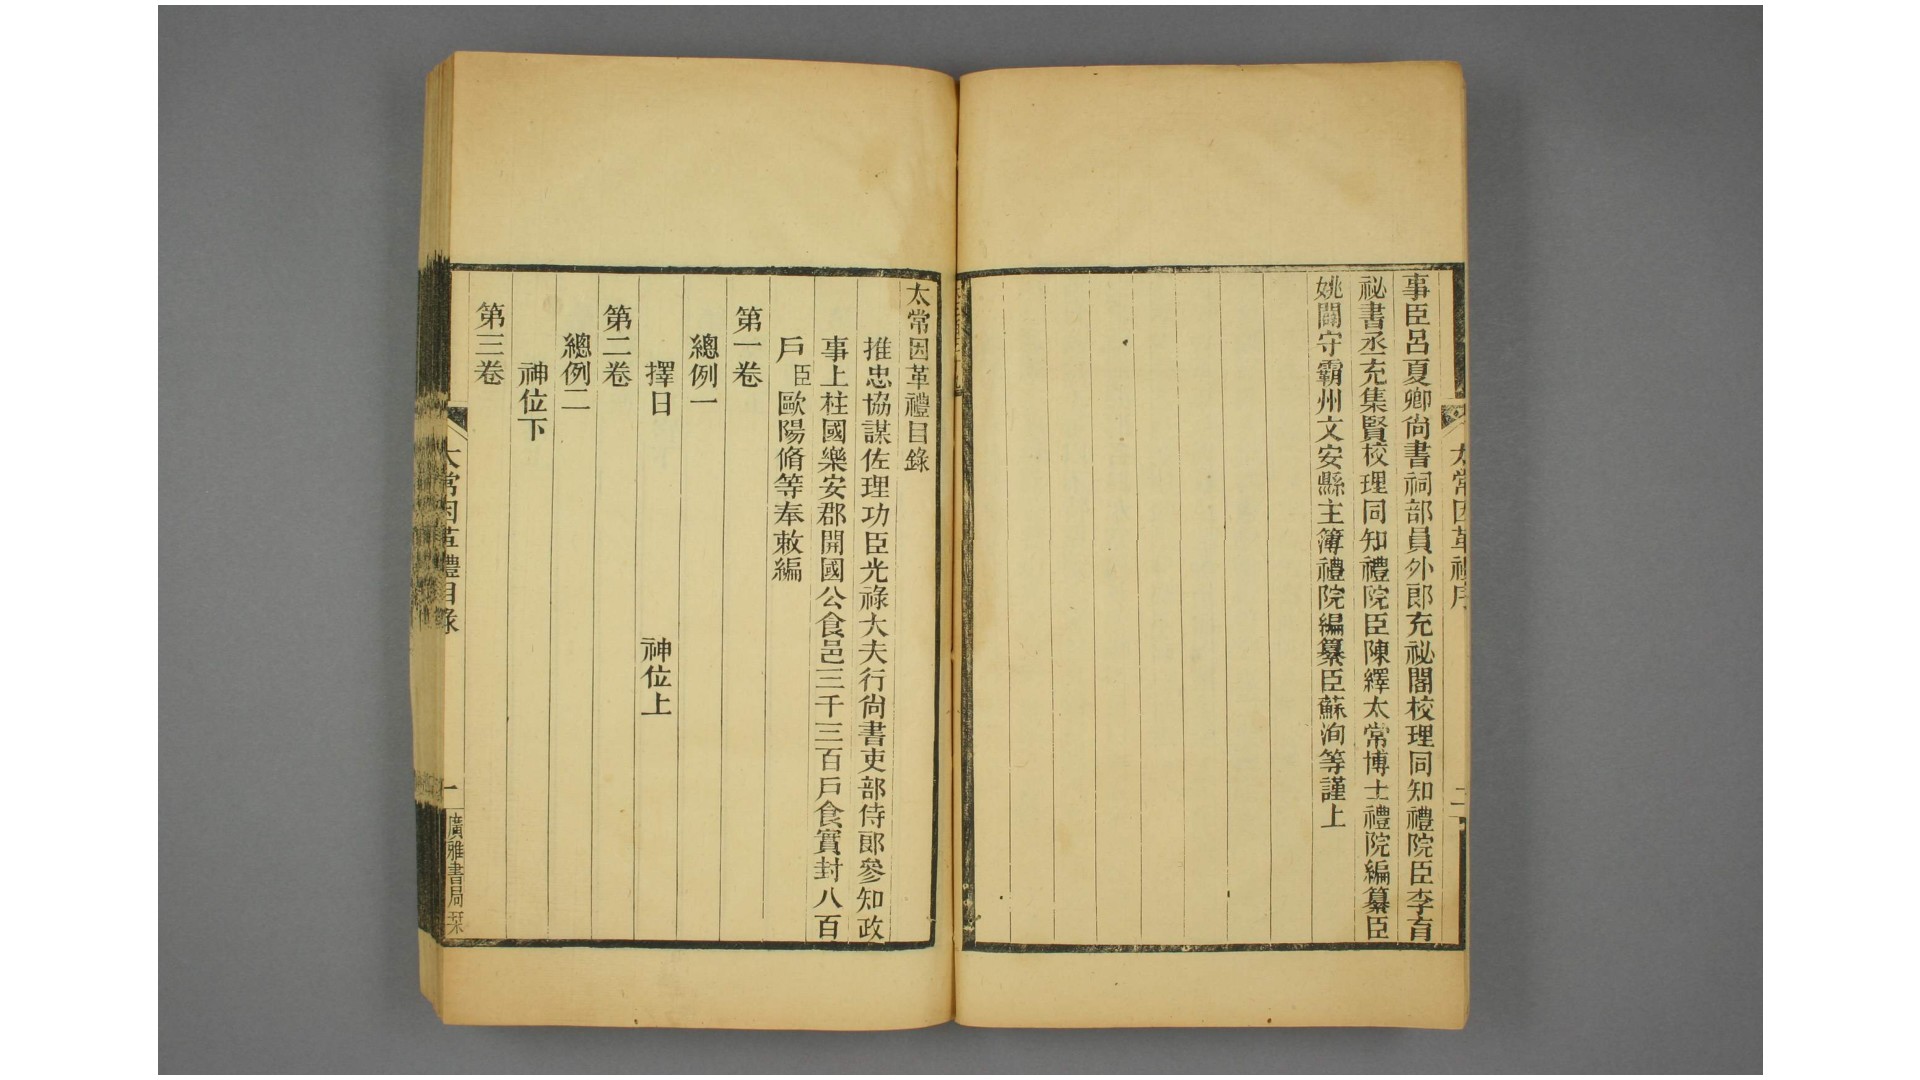 事臣呂夏卿尚書祠部員外郎充祕閣校理同知禮院臣李育
祕書丞充集賢校理同知禮院臣陳繹太常博士禮院編纂臣
姚闢守霸州文安縣主簿禮院編纂臣蘇洵等謹上
太常因革禮序
二
太常因革禮目錄
推忠協謀佐理功臣光祿大夫行尚書吏部侍郎參知政
事上柱國樂安郡開國公食邑三千三百戶食實封八百
戶臣歐陽脩等奉敕編
第一卷
總例一
擇日 神位上
第二卷
總例二
神位下
第三卷
太常因革禮目錄
一
廣雅書局栞